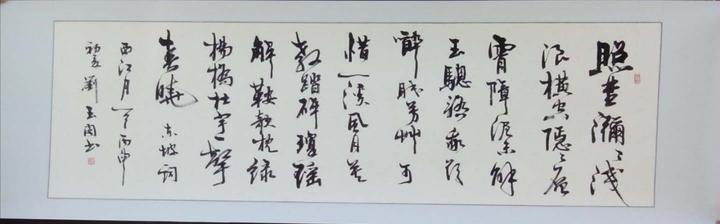 照野瀰〻淺
浪橫空隱〻層
霄障泥未解
玉驄驕我欲
醉眠芳艸可
惜一溪風月莫
教踏碎瓊瑤
解鞍欹枕綠
楊橋杜宇一聲
春曉 東坡詞
西江月一首 丙申
初夏 劉玉書